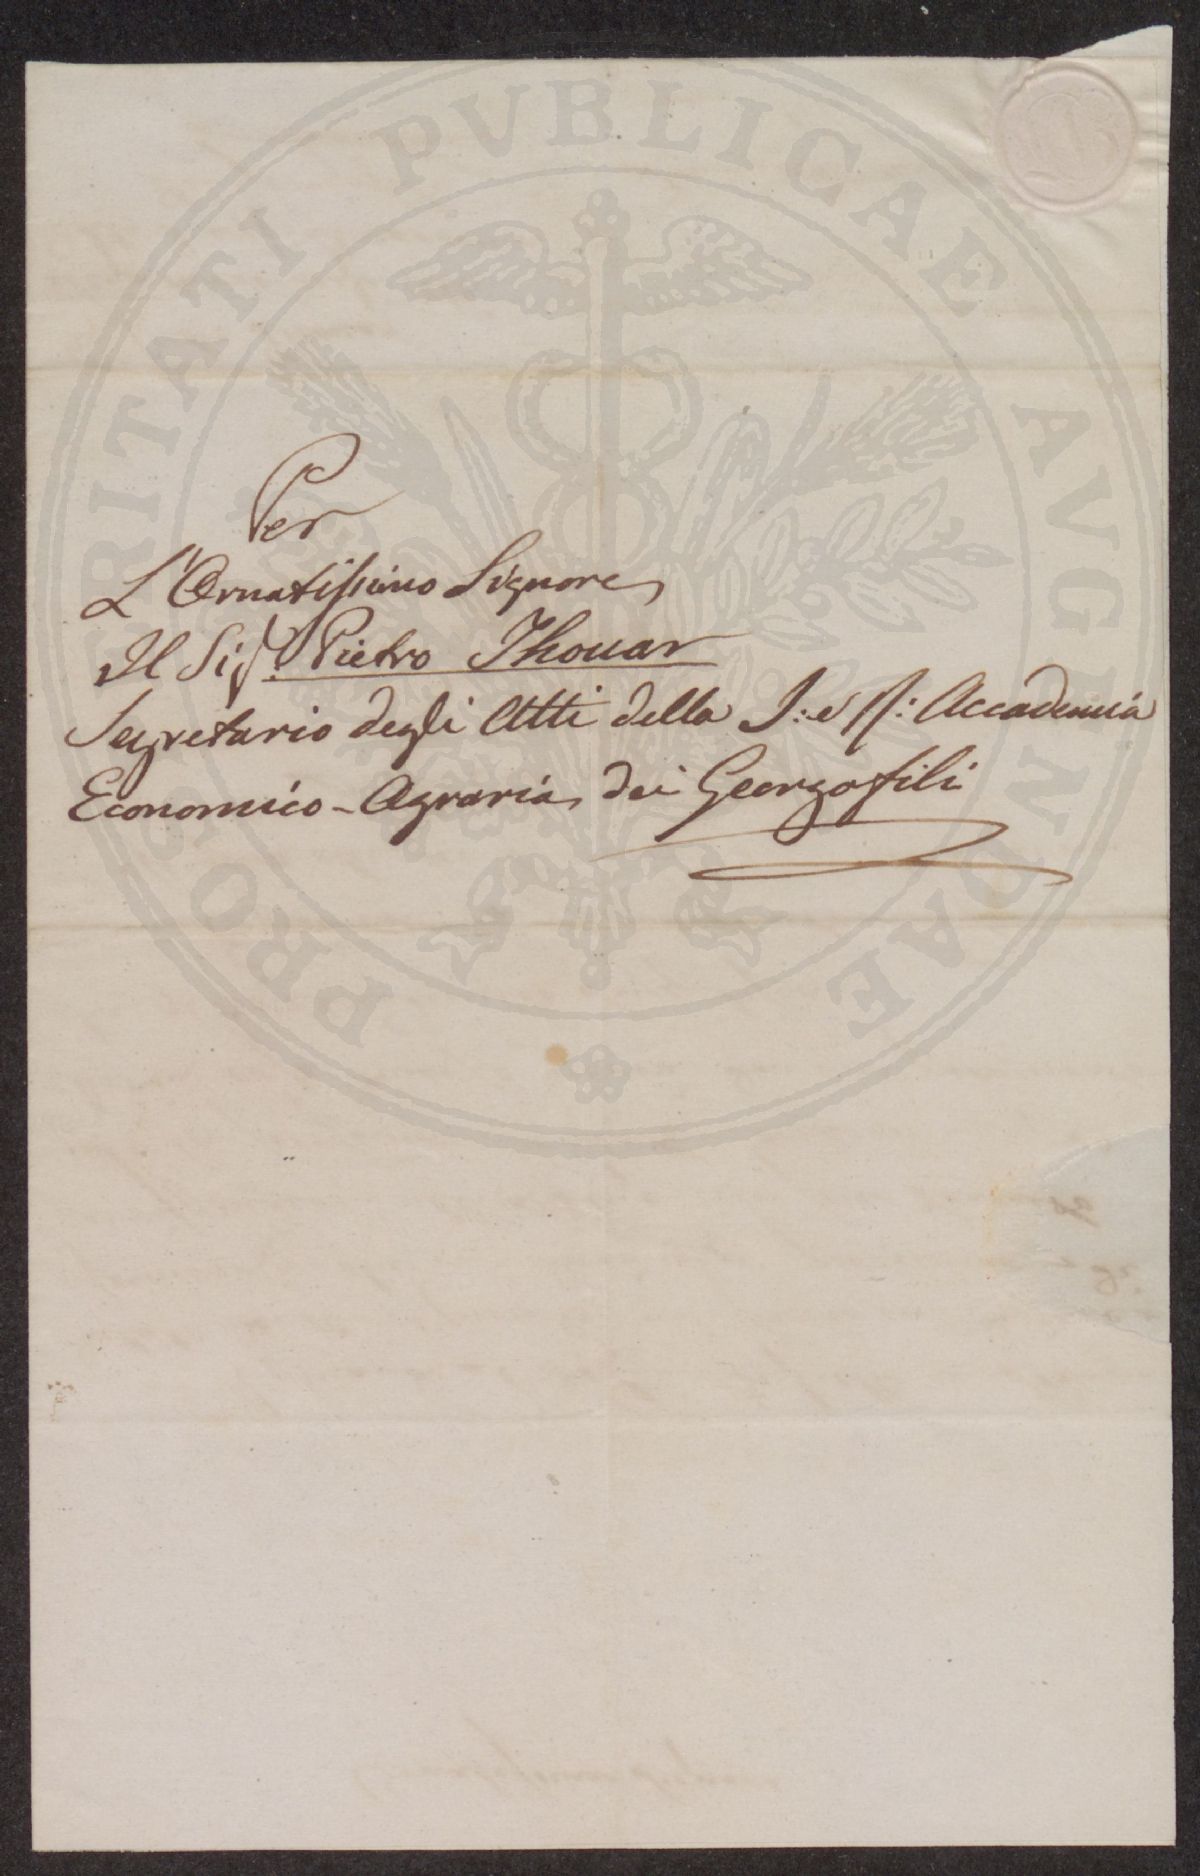 PROSPERITATI PVBLICAE AVGENDAE
Per
L'Ornatissimo Signore
Il Sig.r Pietro Thouar
Segretario degli Atti della I: e R: Accademia
Economico-Agraria dei Georgofili